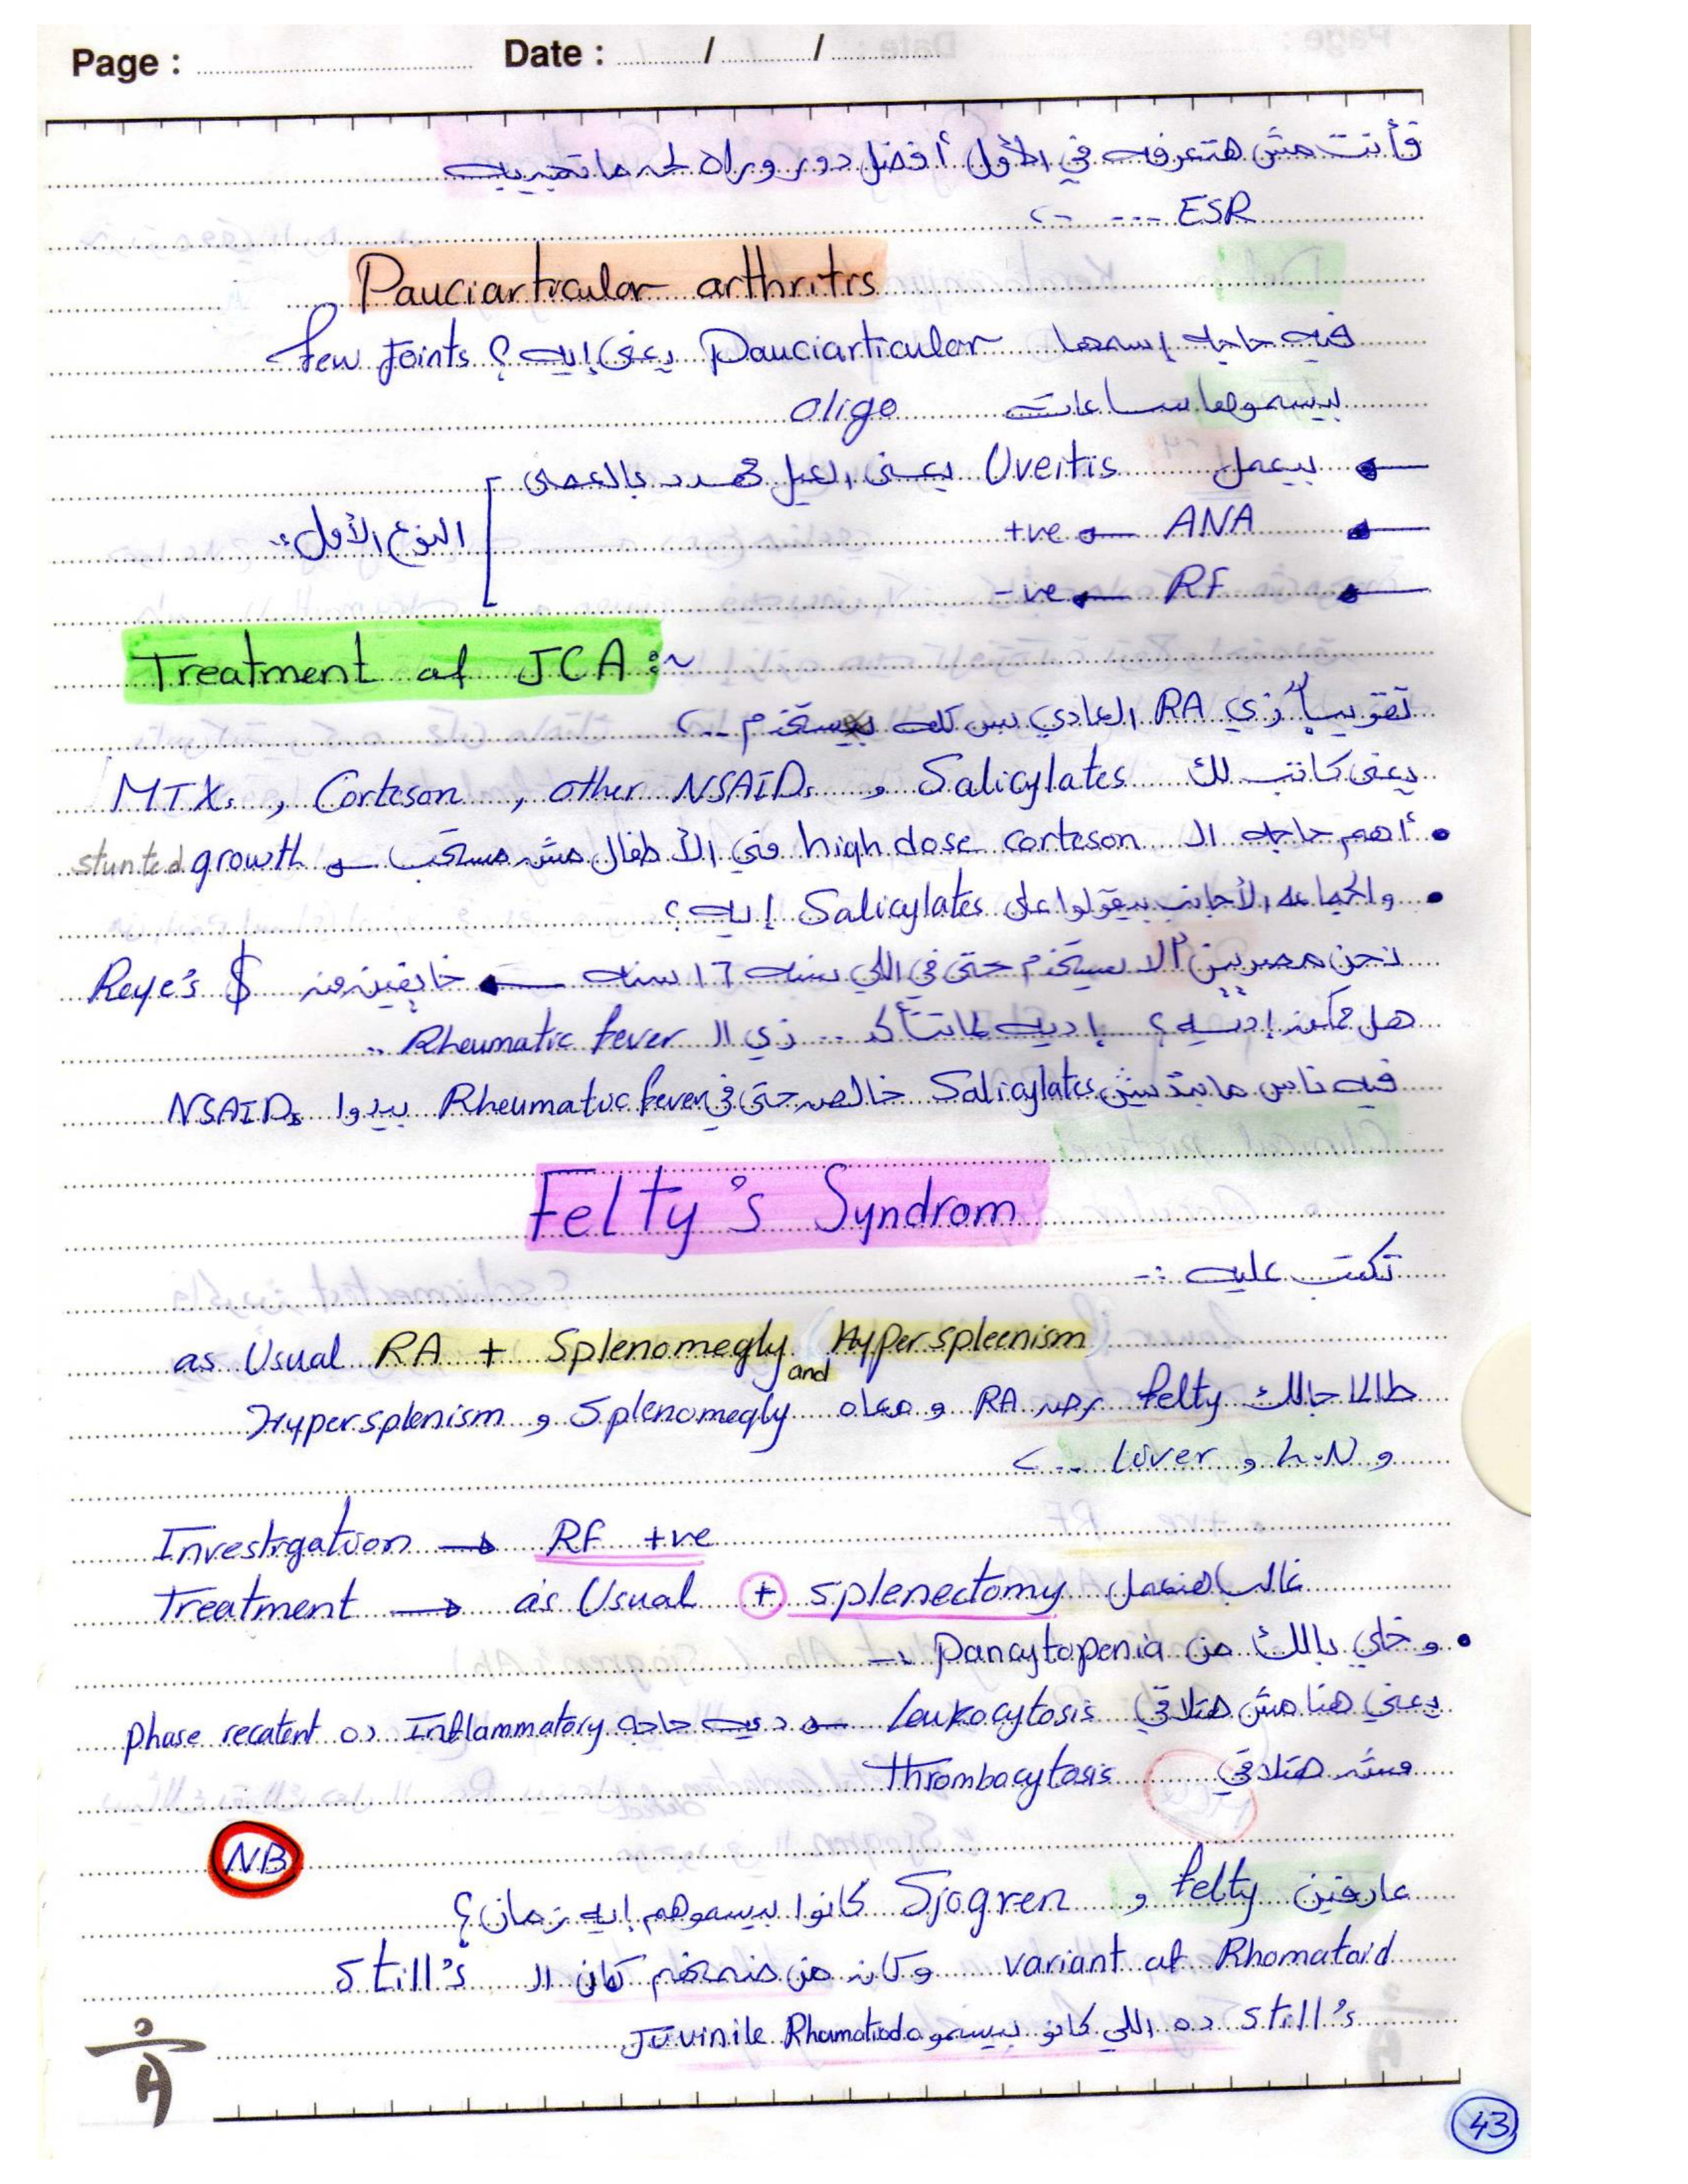 Page : Date : / /
فأنت مش هتعرفه في الأول أفضل دور وراه لحد ما تجيبه
ESR --- →
Pauciarticular arthritis
فيه حاجه إسمها Pauciarticular يعني إيه ؟ few Joints
بيسموها ساعات oligo
بيعمل Uveitis يعني العيل مهدد بالعمى
ANA → +ve
النوع الأول
RF → -ve
Treatment of JCA :~
تقريباً زي RA العادي بس كله يستخدم ..
يعني كاتب لك Salicylates و other NSAIDs , Corteson , MTX
• أهم حاجه الـ high dose corteson في الأطفال مش مستحب → stunted growth
• والجماعه الأجانب بيقولوا على Salicylates إيه ؟
نحن مصريين لا يستخدم حتى في اللي سنه 17 سنه ← خايفين من Reye's $
هل ممكن إديه ؟ إديه لما تتأكد .. زي الـ Rheumatic fever ..
فيه ناس ما بتديش Salicylates خالص حتى في Rheumatic fever بيدوا NSAIDs
Felty's Syndrom
تكتب عليه :-
as Usual RA + Splenomegly and Hyperspleenism
طالما جالك felty يبقى RA و معاه Splenomegly و Hypersplenism
و L.N و Liver ... >
Investigation → RF +ve
Treatment → as Usual + splenectomy غالباً هنعمل
• و خلي بالك من Pancytopenia
يعني هنا مش هتلاقي Leukocytosis → ديه حاجه Inflammatory ده phase recatent
مش هتلاقي thrombocytosis
NB
عارفين felty و Sjogren كانوا بيسموهم إيه زمان ؟
variant of Rhomatoid وكان من ضمنهم كمان الـ Still's
Still's ده اللي كانو بيسموه Juvinile Rhomatiod
43